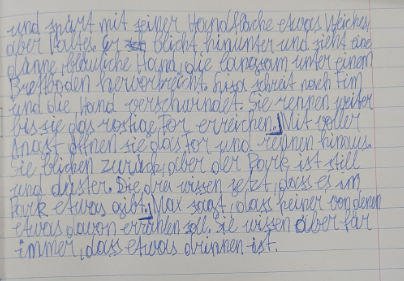 und spürt mit seiner Handfläche etwas Weiches
aber Rautes. Er blickt hinunter und sieht eine
dünne, bläuliche Hand, die langsam unter einem
Busboden hervorkriecht. Lisa schreit nach Tim
und die Hand verschwindet. Sie rennen weiter
bis sie das rostige Tor erreichen. Mit voller
Angst öffnen sie das Tor und rennen hinaus.
Sie blicken zurück, aber der Park ist still
und düster. Die drei wissen jetzt, dass es im
Park etwas gibt. Max sagt, dass keiner von denen
etwas davon erzählen soll. Sie wissen aber für
immer, dass etwas drinnen ist.